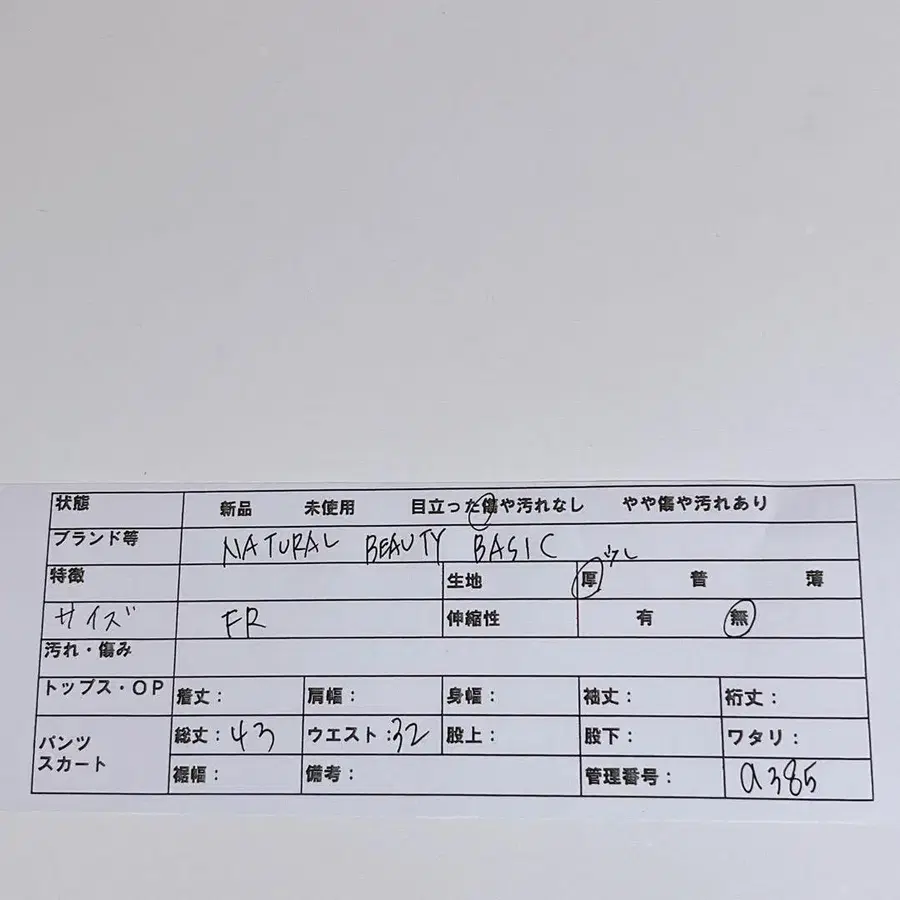 状態 新品 未使用 目立った傷や汚れなし やや傷や汚れあり
ブランド等 NATURAL BEAUTY BASIC
少し
特徴 生地 厚 普 薄
サイズ FR 伸縮性 有 無
汚れ・傷み
トップス・OP 着丈: 肩幅: 身幅: 袖丈: 裄丈:
パンツ
スカート
総丈:43 ウエスト:32 股上: 股下: ワタリ:
裾幅: 備考: 管理番号: a385